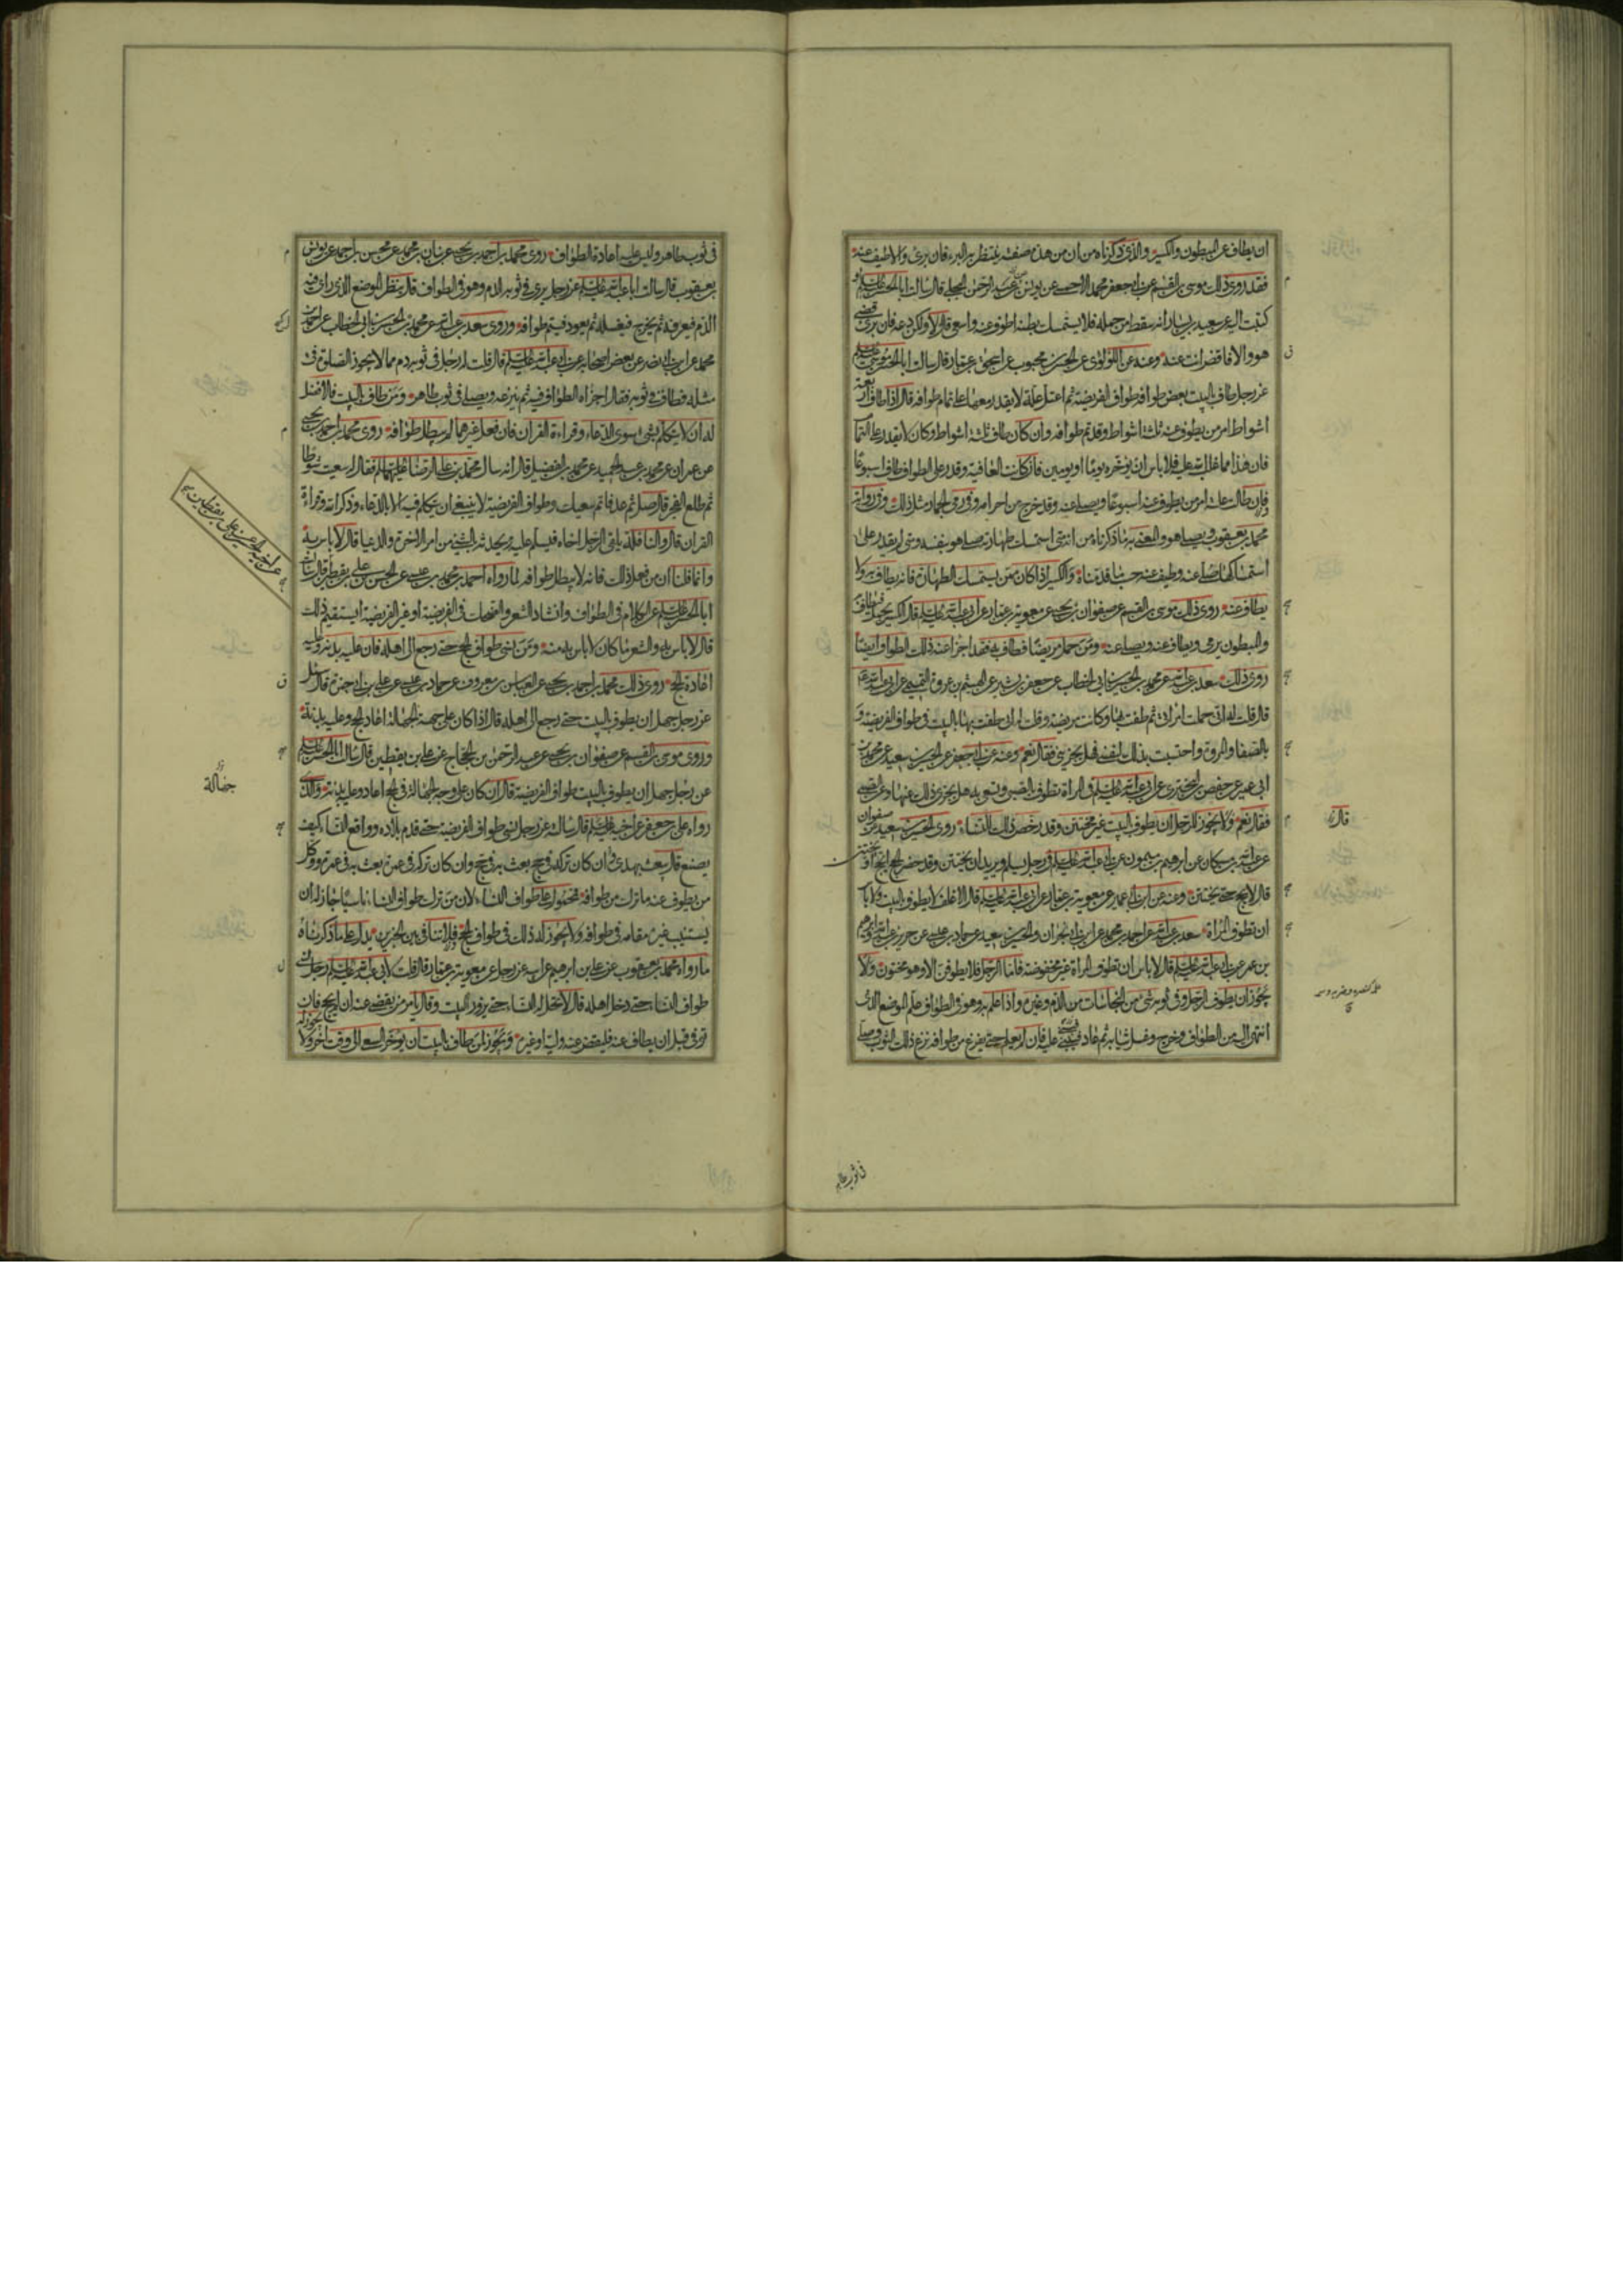 ان يطاف عن المبطون والكسير والذي ذكرناه من ان من هذه صفته ينتظر به البرء فان برئ والا طيف عنه
فقد روى ذلك موسى بن القسم عن ابي جعفر محمد الاحمسي عن يونس بن عبد الرحمن البجلي قال سالت ابا الحسن عليه السلم او
كتبت اليه عن سعيد بن يسار انه سقط من جمله فلا يستمسك بطنه اطوف عنه واسعى قال لا ولكن دعه فان برئ قضى
هو والا فاقض انت عنه وعنه عن اللؤلؤي عن الحسن بن محبوب عن اسحق بن عمار قال سالت ابا الحسن موسى عليه السلم
عن رجل طاف بالبيت بعض طوافه طواف الفريضة ثم اعتل علة لا يقدر معها على تمام طوافه قال اذا طاف اربعة
اشواط امر من يطوف عنه ثلثة اشواط وقد تم طوافه وان كان طاف ثلثة اشواط وكان لا يقدر على التمام
فان هذا مما غلب الله عليه فلا باس ان يؤخره يوما او يومين فان كانت العافية وقدر على الطواف طاف اسبوعا
فان طالت علته امر من يطوف عنه اسبوعا ويصلي عنه وقد خرج من احرامه وفي رمي الجمار مثل ذلك وفي رواية
محمد بن يعقوب ويصلي هو والمعني به ما ذكرناه من انه متى استمسك طهارته صلى هو بنفسه ومتى لم يقدر على
استمساكها صلي عنه وطيف عنه حسب ما قدمناه والكسير اذا كان ممن يستمسك الطهارة فانه يطاف به ولا
يطاف عنه روى ذلك موسى بن القسم عن صفوان بن يحيى عن معوية بن عمار عن ابي عبد الله عليه السلم قال الكسير يحمل فيطاف به
والمبطون يرمى ويطاف عنه ويصلى عنه ومن حمل مريضا فطاف به فقد اجزأ عنه ذلك الطواف ايضا
روى ذلك سعد بن عبد الله عن محمد بن الحسين بن ابي الخطاب عن جعفر بن بشير عن الهيثم بن عروة التميمي عن ابي عبد الله عليه السلم
قال قلت له اني حملت امراتي ثم طفت بها وكانت مريضة وقلت له اني طفت بها بالبيت في طواف الفريضة و
بالصفا والمروة واحتسبت بذلك لنفسي فهل يجزيني فقال نعم وعنه عن ابي جعفر عن الحسين بن سعيد عن محمد بن
ابي عمير عن حفص بن البختري عن ابي عبد الله عليه السلم في المراة تطوف بالصبي وتسعى به هل يجزي ذلك عنها وعن الصبي
فقال نعم ولا يجوز للرجل ان يطوف بالبيت غير مختتن وقد رخص ذلك للنساء روى الحسين بن سعيد عن صفوان
عن عبد الله بن مسكان عن ابراهيم بن ميمون عن ابي عبد الله عليه السلم في رجل يسلم ويريد ان يختتن وقد حضر الحج ايحج او يختتن
قال لا يحج حتى يختتن وعنه عن ابن ابي عمير عن معوية بن عمار عن ابي عبد الله عليه السلم قال الاغلف لا يطوف بالبيت ولا باس
ان تطوف المراة سعد بن عبد الله عن احمد بن محمد عن ابن ابي نجران والحسين بن سعيد عن حماد بن عيسى عن حريز عن ابي عبد الله وابراهيم
بن عمر عن ابي عبد الله عليه السلم قال لا باس ان تطوف المراة غير مخفوضة فاما الرجل فلا يطوفن الا وهو مختون ولا
يجوز ان يطوف الرجل وفي ثوبه شئ من النجاسات من الدم وغيره واذا علم به وهو في الطواف علم الموضع الذي
انتهى اليه من الطواف وخرج وغسل ثيابه ثم عاد فبنى عليه فان لم يعلم حتى يفرغ من طوافه نزع ذلك الثوب وصلى
قال
في ثوب طاهر
في ثوب طاهر وليس عليه اعادة الطواف روى محمد بن احمد بن يحيى عن بنان بن محمد عن محسن بن احمد عن يونس
بن يعقوب قال سالت ابا عبد الله عليه السلم عن رجل يرى في ثوبه الدم وهو في الطواف قال ينظر الموضع الذي راى فيه
الدم فيعرفه ثم يخرج فيغسله ثم يعود فيتم طوافه وروى سعد بن عبد الله عن محمد بن الحسين بن ابي الخطاب عن احمد بن
محمد بن ابي نصر عن بعض اصحابه عن ابي عبد الله عليه السلم قال قلت له رجل في ثوبه دم مما لا تجوز الصلوة في
مثله فطاف في ثوبه فقال اجزاه الطواف فيه ثم ينزعه ويصلي في ثوب طاهر ومن طاف بالبيت فالافضل
له ان لا يتكلم بشئ سوى الدعاء وقراءة القران فان فعل غيرهما لم يبطل طوافه روى محمد بن احمد بن يحيى
عن عمران عن محمد بن عبد الحميد عن محمد بن الفضيل قال انه سال محمد بن علي الرضا عليهما السلم فقال له سعيت شوطا
ثم طلع الفجر قال صل ثم عد فاتم سعيك وطواف الفريضة لا ينبغي ان يتكلم فيه الا بالدعاء وذكر الله وقراءة
القران قال والنافلة يلقى الرجل اخاه فيسلم عليه ويحدثه بالشئ من امر الاخرة والدنيا قال لا باس به
وانما قلنا ان من فعل ذلك فانه لا يبطل طوافه لما رواه احمد بن محمد بن عيسى عن الحسن بن علي بن يقطين قال سالت
ابا الحسن عليه السلم عن الكلام في الطواف وانشاد الشعر والضحك في الفريضة او غير الفريضة ايستقيم ذلك
قال لا باس به والشعر ما كان لا باس به منه ومن نسى طواف الحج حتى رجع الى اهله فان عليه بدنة وعليه
اعادة الحج روى ذلك محمد بن احمد بن يحيى عن العباس بن معروف عن حماد بن عيسى عن علي بن ابي حمزة قال سئل
عن رجل جهل ان يطوف بالبيت حتى رجع الى اهله قال اذا كان على جهة الجهالة اعاد الحج وعليه بدنة
وروى موسى بن القسم عن صفوان بن يحيى عن عبد الرحمن بن الحجاج عن علي بن يقطين قال سالت ابا الحسن عليه السلم
عن رجل جهل ان يطوف بالبيت طواف الفريضة قال ان كان على وجه الجهالة في الحج اعاد وعليه بدنة والذي
رواه علي بن جعفر عن اخيه عليه السلم قال سالته عن رجل نسى طواف الفريضة حتى قدم بلاده وواقع النساء كيف
يصنع قال يبعث بهدي ان كان تركه في حج بعث به في حج وان كان تركه في عمرة بعث به في عمرة ووكل
من يطوف عنه ما ترك من طوافه فمحمول على طواف النساء لان من ترك طواف النساء ناسيا جاز له ان
يستنيب غيره مقامه في طوافه ولا يجوز له ذلك في طواف الحج فلا تنافي بين الخبرين يدل على ما ذكرناه
ما رواه محمد بن يعقوب عن علي بن ابراهيم عن ابيه عن رجل عن معوية بن عمار قال قلت لابي عبد الله عليه السلم رجل نسى
طواف النساء حتى دخل اهله قال لا تحل له النساء حتى يزور البيت وقال يامر من يقضى عنه ان لم يحج فان
توفي قبل ان يطاف عنه فليقض عنه وليه او غيره ويجوز لمن طاف بالبيت ان يؤخر السعي الى وقت اخر ولا يجوز له
عن اخيه الحسين عن علي بن يقطين
جهالة